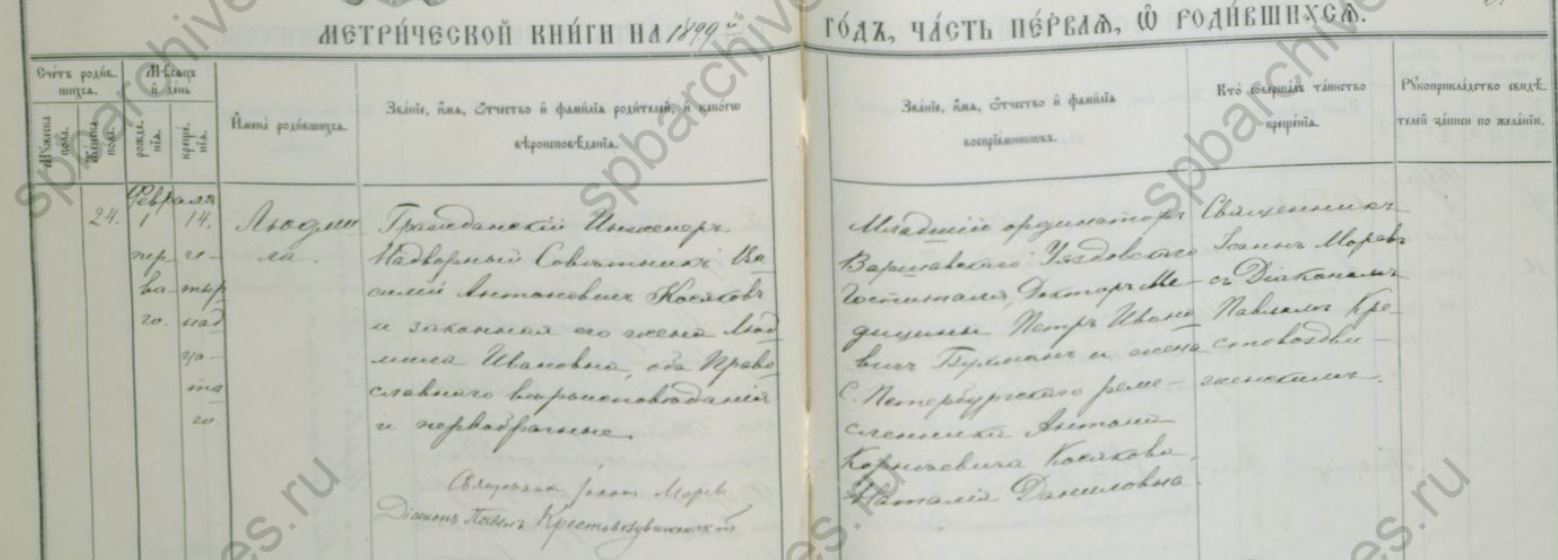 МЕТРИ́ЧЕСКОЙ КНИ́ГИ НА 1899й ГО́ДЪ, ЧА́СТЬ ПЕ́РВАѦ, Ѡ҆ РОДИ́ВШИХСѦ.
Сче́тъ роди́в-
шихсѧ.
Мужеска пола.
Женска пола.
Мѣ́сѧцъ
и҆ день
рожде-
нїѧ.
креще-
нїѧ.
И҆мена̀ роди́вшихсѧ.
Зва́нїе, и҆́мѧ, ѻ҆́тчество и҆ фами́лїѧ роди́телей, и҆ како́гѡ
вѣроисповѣ́данїѧ.
Зва́нїе, и҆́мѧ, ѻ҆́тчество и҆ фами́лїѧ
воспрїе́мниковъ.
Кто̀ соверша́лъ та́инство
креще́нїѧ.
Рꙋкоприкла́дство свидѣ́-
телей за́писи по жела́нїю.
Февраля
24.
1
пер
ва-
го.
14.
че-
тыр
над
ца-
та
го.
Людми
ла
Гражданскій Инженеръ
Надворный Совѣтникъ Ва-
силій Антоновичъ Косяковъ
и законная его жена Люд
мила Ивановна, оба Право
славнаго вѣроисповѣданія
и первобрачные.
Священник Іоанн Морев
Діаконъ Павелъ Крестовоздвиженскій
Младшій ординаторъ
Варшавскаго Уяздовскаго
Госпиталя, Докторъ Ме-
дицины Петръ Ивано
вичъ Бухманъ и жена
С. Петербургскаго реме-
сленника Антонія
Корнѣевича Косякова,
Наталія Даниловна.
Священникъ
Іоаннъ Моревъ
съ Діакономъ
Павломъ Кре-
стовоздви-
женскимъ.
spbarchives.ru